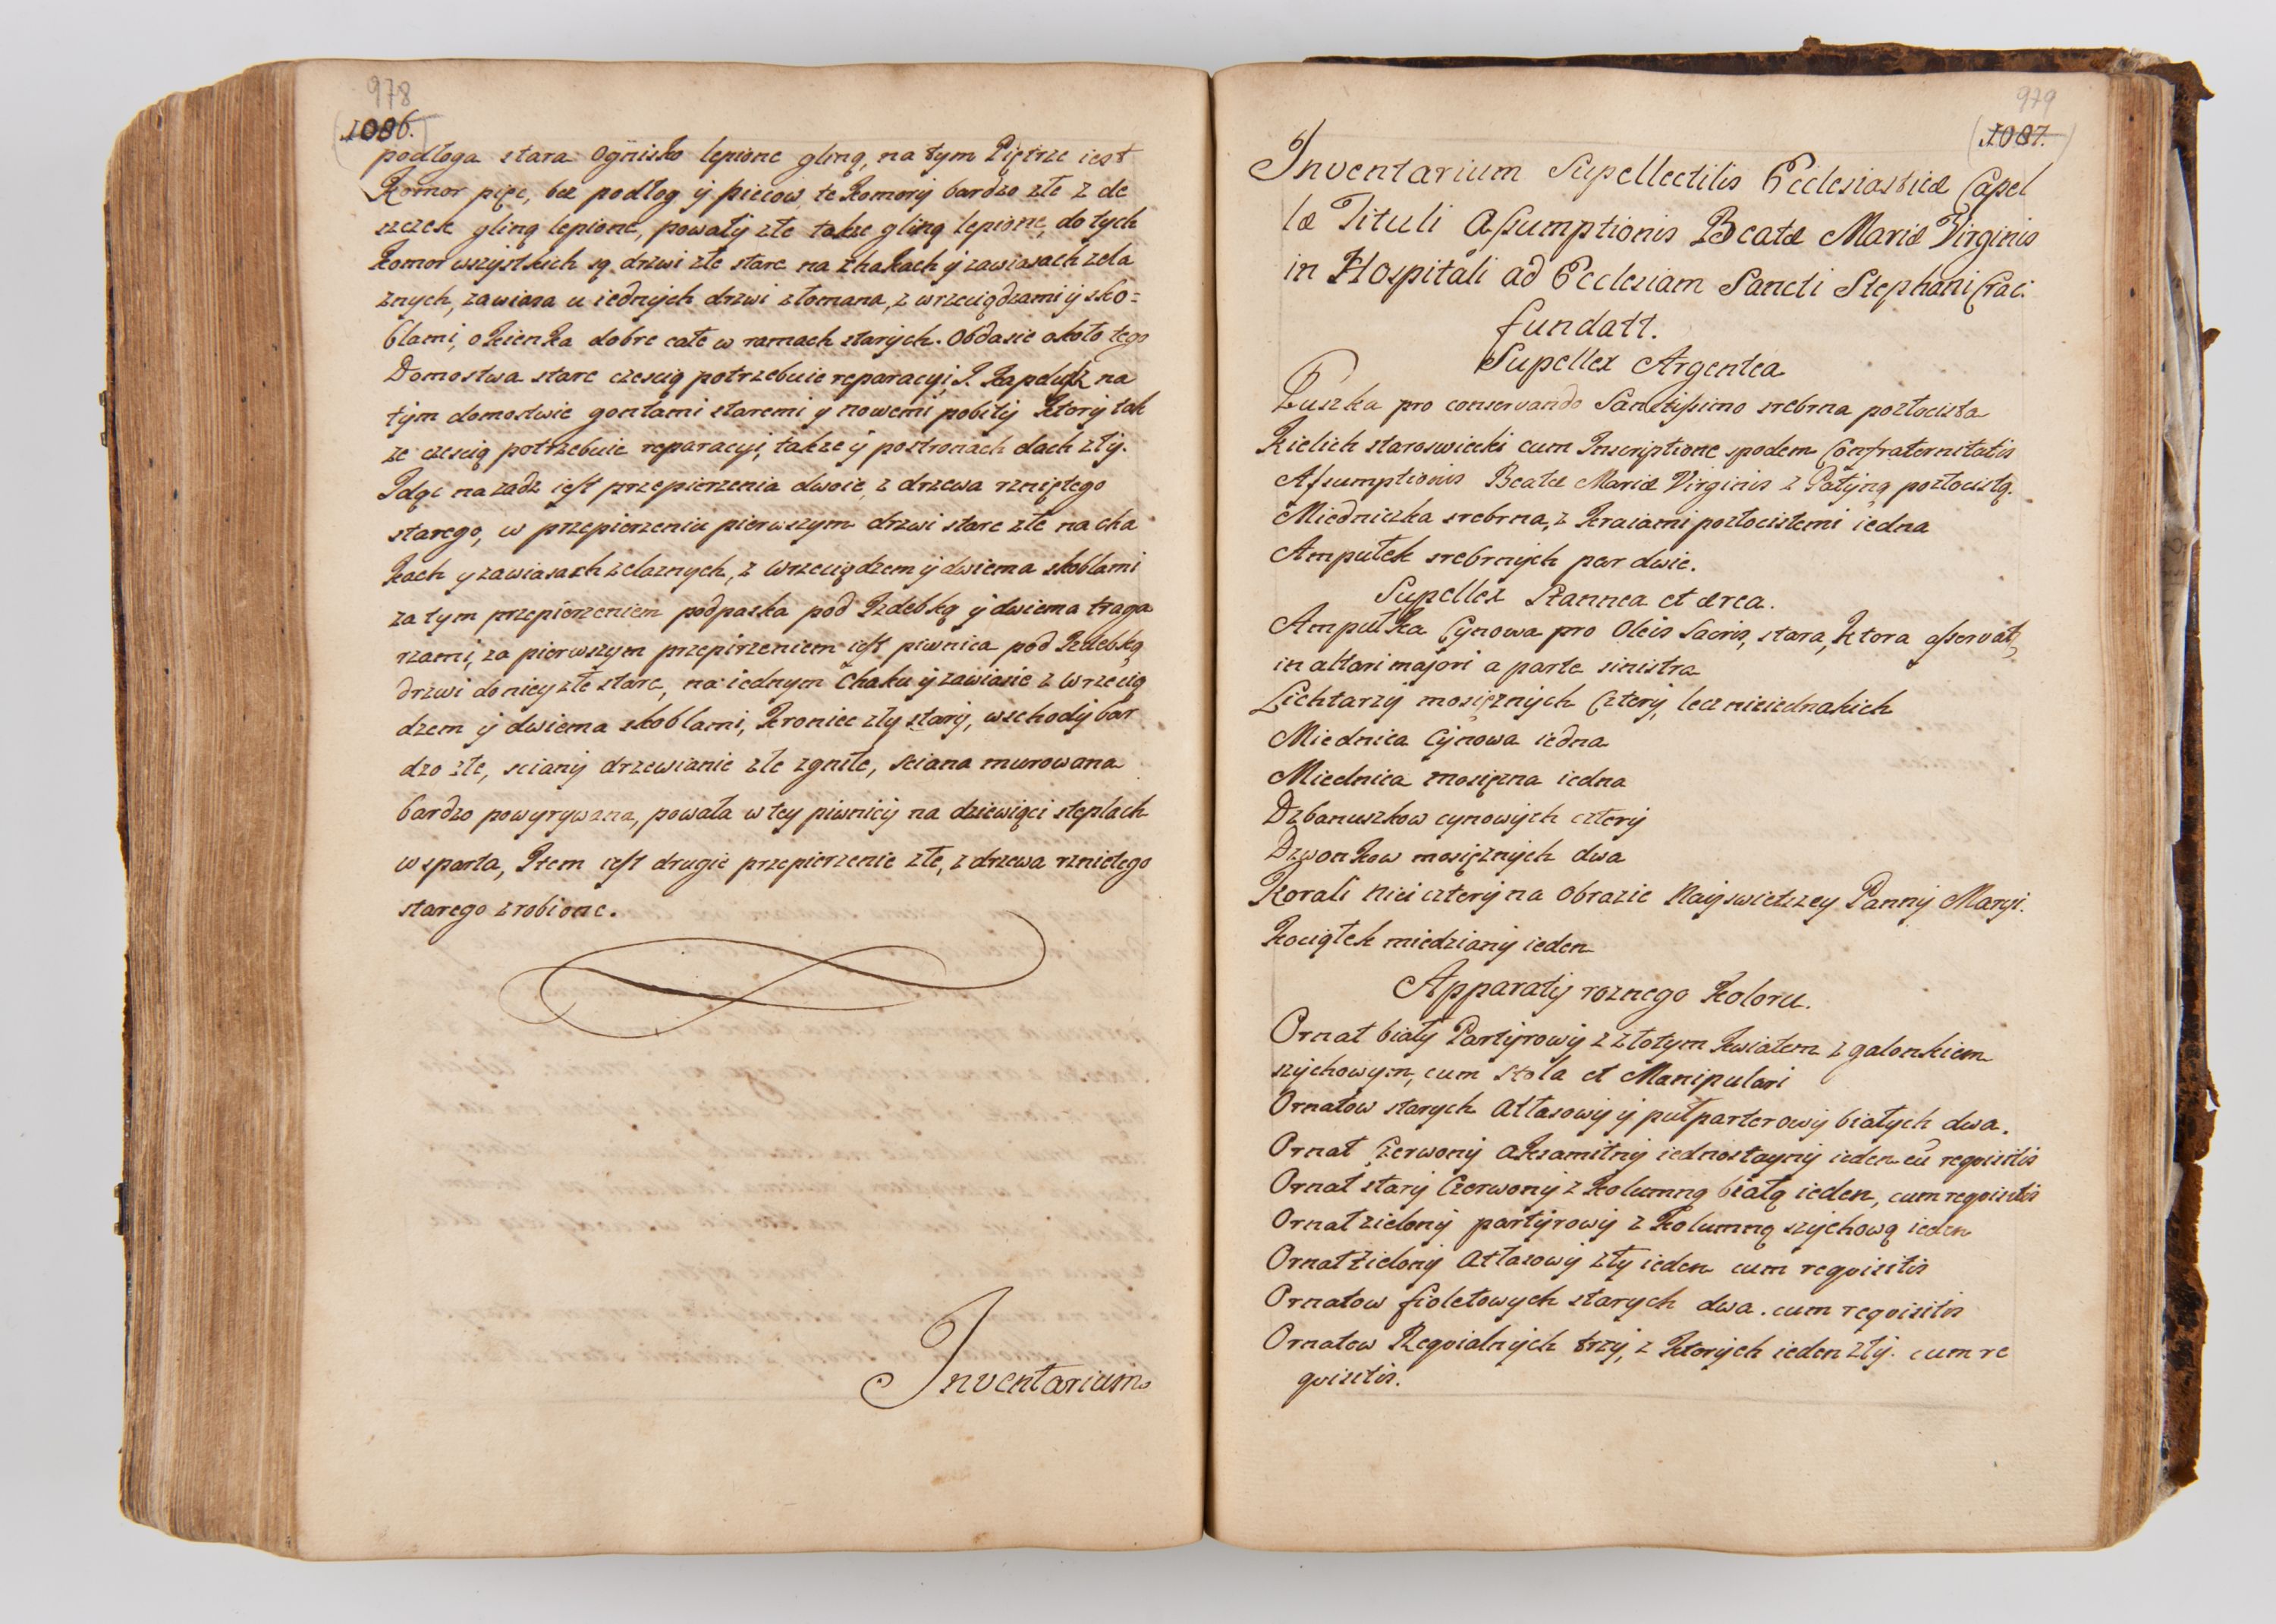 978
1086.
podłoga stara Ognisko lepione gliną, na tym Piętrze iest
Komor pięc, bez podłog ÿ pieców, te Komorÿ bardzo złe z de
szczek gliną lepione, powałÿ złe takze gliną lepione, do tych
Komor wszÿstkich są drzwi złe stare na chakach ÿ zawiasach zela
znych, zawiasa u iednÿch drzwi złomana, z wrzeciądzami ÿ sko=
blami, okienka dobre całe w ramach starÿch. Obdasie około tego
Domostwa stare czescią potrzebuie reparacÿi, na
tÿm domostwie gontami staremi y nowemi pobitÿ Ktorÿ tak
ze czescią potrzebuie reparacyi, takze ÿ postronach dach złÿ.
Idąc nazadz iest przepierzenia dwoie, z drzewa rzniętego
starego, w przepierzeniu pierwszym drzwi stare złe na cha
kach y zawiasach zelaznych, z wrzeciądzem ÿ dwiema skoblami
za tym przepierzeniem podpaska pod Izdebką ÿ dwiema traga
rzami, za pierwszym przepirzeniem iest piwnica pod Izdebką
drzwi do niey złe stare, na iednym Chaku ÿ zawiasie z wrzecią
dzem ÿ dwiema skoblami, Kroniec zły starÿ, wschodÿ bar
dzo złe, scianÿ drzewianie złe zgniłe, sciana murowana
bardzo powyrywana, powała w tey piwnicÿ na dziewiąci steplach
wsparta, Item iest drugie przepierzenie złe, z drzewa rznietego
starego zrobione.
Inventarium
979
1087.
Inventarium Supellectilis Ecclesiasticæ Capel
læ Tituli Assumptionis Beatæ Mariæ Virginis
in Hospitali ad Ecclesiam Sancti Stephani Crac:
fundatt.
Supellex Argentea
Puszka pro conservando Sanctissimo srebrna pozłocista
Kielich staroswiecki cum Inscriptione spodem Confraternitatis
Assumptionis Beatæ Mariæ Virginis z Patÿną pozłocistą.
Miedniczka srebrna, z Kraiami pozłocistemi iedna
Ampułek srebrnÿch par dwie.
Supellex Stannea et ærea.
Ampułka Cÿnowa pro Oleis Sacris, stara, Ktora asservat
in altari majori a parte sinistra
Lichtarzy mosięznÿch Czterÿ, lecz nieiednakich
Miednica Cÿnowa iedna
Miednica mosięzna iedna
Dzbanuszkow cynowÿch czterÿ
Dzwonkow mosięznÿch dwa
Korali nici czterÿ na Obrazie Nayswietszey Pannÿ Maryi.
Kociąłek miedzianÿ ieden
Apparatÿ roznego Koloru.
Ornat białÿ Partÿrowÿ z złotym Kwiatem z galonkiem
szÿchowym, cum Stola et Manipulari
Ornatow starych Atłasowÿ ÿ pułparterowÿ białych dwa.
Ornat Czerwonÿ Akzamitnÿ iednostaynÿ ieden cū reqvisitis
Ornat starÿ Czerwonÿ z Kolumną białą ieden, cum reqvisitis
Ornat zielonÿ partÿrowÿ z Kolumną szÿchową ieden
Ornat zielonÿ Atłasowÿ złÿ ieden cum reqvisitis
Ornatow fioletowych starych dwa. cum reqvisitis
Ornatow Reqvialnÿch trzÿ, z Ktorÿch ieden złÿ. cum re
qvisitis.